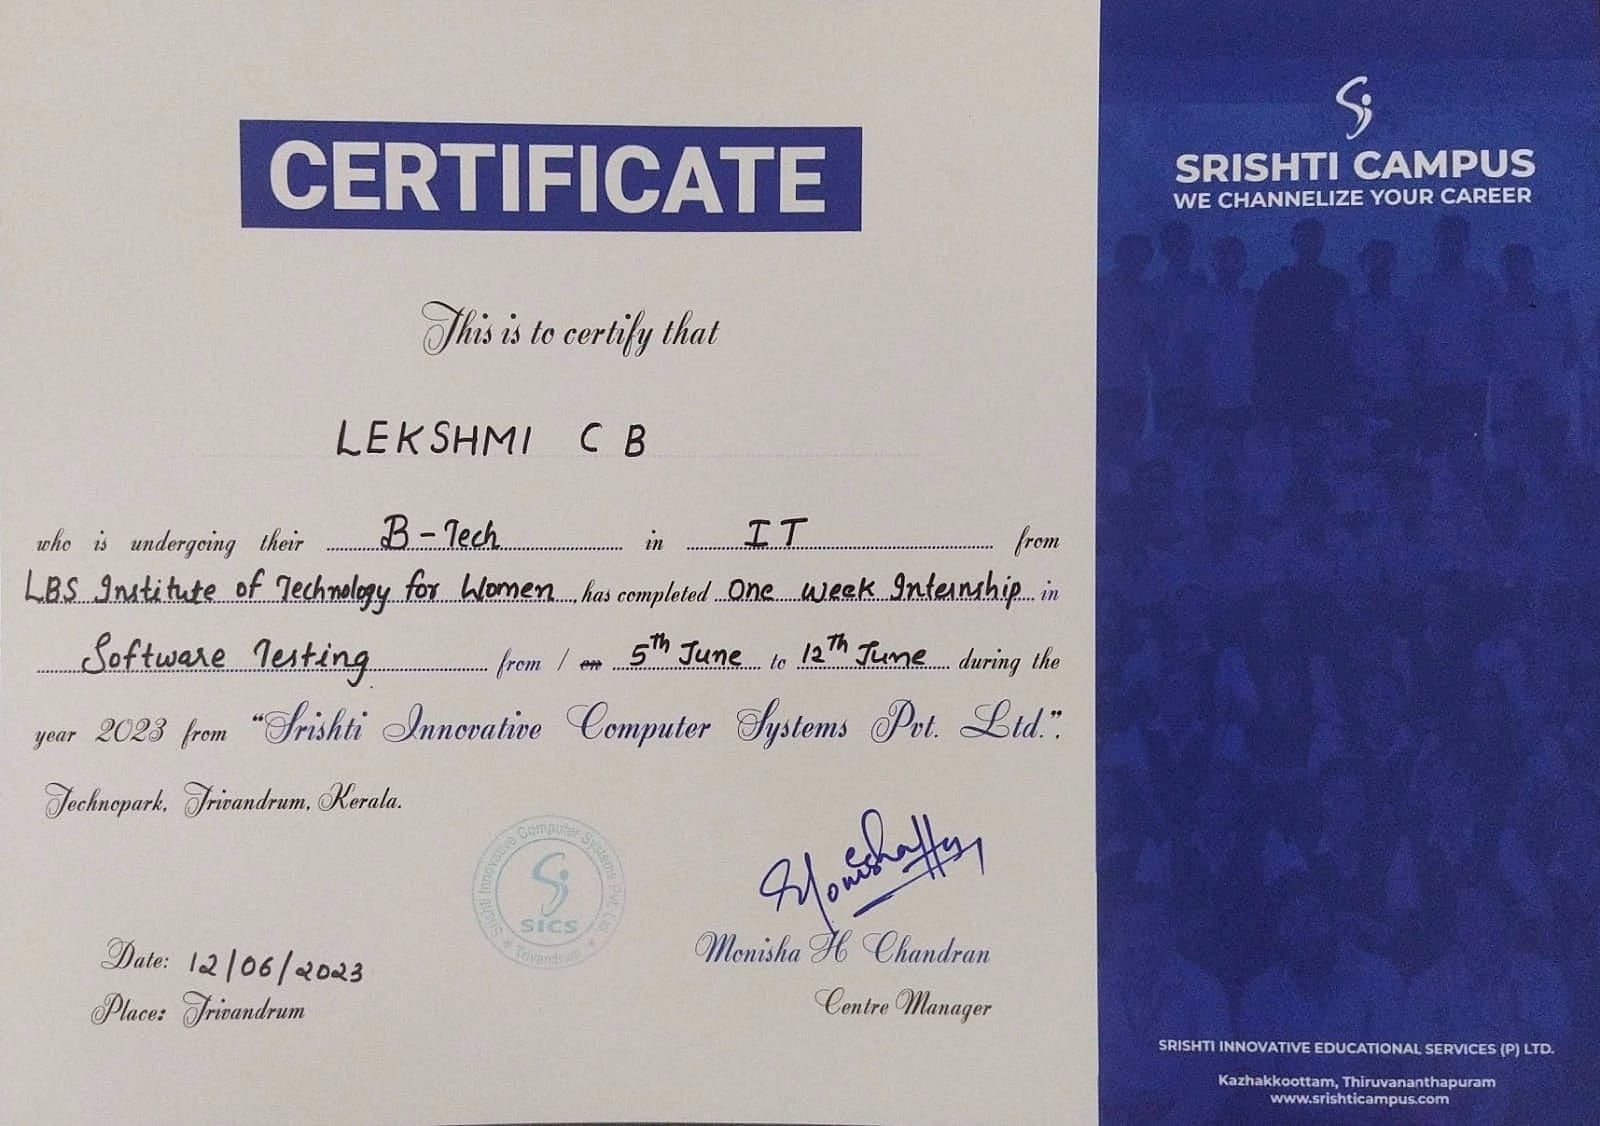 CERTIFICATE
This is to certify that
LEKSHMI C B
who is undergoing their B-Tech in IT from
LBS Institute of Technology for Women, has completed One week Internship in
Software Testing from / on 5th June to 12th June during the
year 2023 from "Srishti Innovative Computer Systems Pvt. Ltd.".
Technopark, Trivandrum, Kerala.
Srishti Innovative Computer Systems Pvt. Ltd.
SICS
Trivandrum
Monisha H Chandran
Centre Manager
Date: 12/06/2023
Place: Trivandrum
SRISHTI CAMPUS
WE CHANNELIZE YOUR CAREER
SRISHTI INNOVATIVE EDUCATIONAL SERVICES (P) LTD.
Kazhakkoottam, Thiruvananthapuram
www.srishticampus.com